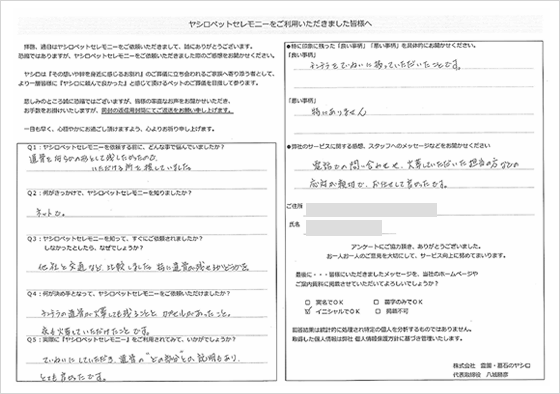 ヤシロペットセレモニーをご利用いただきました皆様へ
拝啓、過日はヤシロペットセレモニーをご依頼いただきまして、誠にありがとうございます。
恐縮ではありますが、ヤシロペットセレモニーをご依頼いただきました際のご感想をお聞かせください。
ヤシロは「その想いや絆を身近に感じるお別れ」のご葬儀に立ち会われるご家族へ寄り添う者として、
より一層皆様に『ヤシロに頼んで良かった』と感じて頂けるペットのご葬儀を目指して参ります。
悲しみのところ誠に恐縮ではございますが、皆様の率直なお声をお聞かせいただき、
お手数をお掛けいたしますが、同封の返信用封筒にてご返送をお願い申し上げます。
一日も早く、心穏やかにお過ごし頂けますよう、心よりお祈り申し上げます。
Q1：ヤシロペットセレモニーを依頼する前に、どんな事で悩んでいましたか？
遺骨を何らかの形として残したかったので、
いただける所を探していました。
Q2：何がきっかけで、ヤシロペットセレモニーを知りましたか？
ネットで。
Q3：ヤシロペットセレモニーを知って、すぐにご依頼されましたか？
しなかったとしたら、なぜでしょうか？
他社と交通など比較しました。特に遺骨が残せるかどうかを。
Q4：何が決め手となって、ヤシロペットセレモニーをご依頼いただけましたか？
の遺骨が火葬しても残ること
火葬していただけたことです。
Q5：実際に『ヤシロペットセレモニー』をご利用されてみて、いかがでしょうか？
ていねいにしていただき、遺骨の"どの部分"との説明もあり、
とても良かったです。
●特に印象に残った「良い事柄」「悪い事柄」を具体的にお聞かせください。
「良い事柄」
ていねいに持っていただいたことです。
「悪い事柄」
特にありません
●弊社のサービスに関する感想、スタッフへのメッセージなどをお聞かせください
電話での問い合わせ、火葬していただいた担当の方などの
応対が親切で、お任せして良かったです。
ご住所
氏名
アンケートにご協力頂き、ありがとうございました。
お一人お一人のご意見を大切にして、サービス向上に努めてまいります。
最後に・・・皆様にいただきましたメッセージを、当社のホームページや
ご案内資料に掲載させていただいてよろしいでしょうか？
□ 実名でOK □ 苗字のみでOK
☑ イニシャルでOK □ 掲載不可
回答結果は統計的に処理され特定の個人を分析するものではありません。
取得した個人情報は弊社 個人情報保護方針に基づき管理いたします。
株式会社 霊園・墓石のヤシロ
代表取締役 八城勝彦